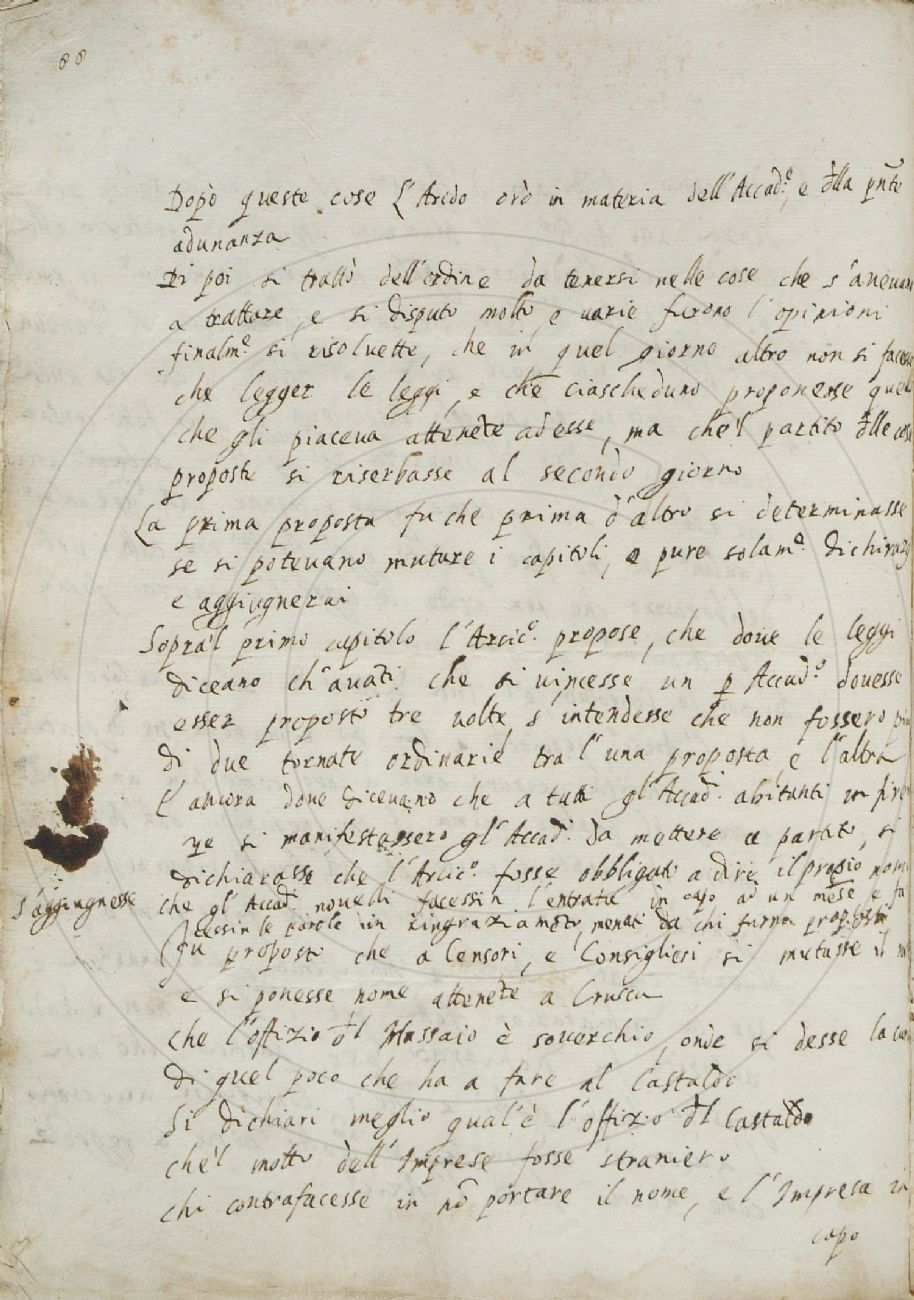 88
Dopò queste cose l'Arido orò in materia dell'Accad.ª, e d̄lla pn̄te
adunanza
Di poi si trattò dell'ordine da tenersi nelle cose che s'aueuano
a trattare, e si disputò molto, e uarie furono l'opinioni
finalm.e si risoluette, che in quel giorno altro non si facesse
che legger le leggi, e che ciascheduno proponesse quello
che gli piaceua attenēte ad esse, ma che'l partito d̄lle cose
proposte si riserbasse al secondo giorno
La prima proposta fu che prima d'altro si determinasse
se si poteuano mutare i capitoli, o pure solam.e dichirarg
e aggiugnerui
Sopra'l primo capitolo l'Arcic.º propose, che doue le leggi
diceano ch'auāti che si uincesse un p Accad.º douesse
esser proposto tre uolte, s'intendesse che non fossero più
di due tornate ordinarie tra l'una proposta, e l'altra
E ancora doue diceuano che a tutti gl'Accad. abitanti in firen
ze si manifestassero gl'Accad. da mettere a partito, si
dichiarasse che l'Arcic.º fosse obbligato a dire il propio nome
s'aggiugnesse che gl'Accad. nouelli facessin l'entrata in capo ad un mese e fa
cessin le parole in ringraziamēto, menati da chi furno proposti
Fu proposto che a Censori, e Consiglieri si mutasse il
e si ponesse nome attenēte a Crusca
Che l'offizio d̄l Massaio è souerchio, onde si desse la cura
di quel poco che ha a fare al Castaldo
Si dichiari meglio qual'è l'offizo d̄l Castaldo
che'l motto dell'Imprese fosse straniero
chi contrafacesse in nō portare il nome, e l'Impresa in
capo